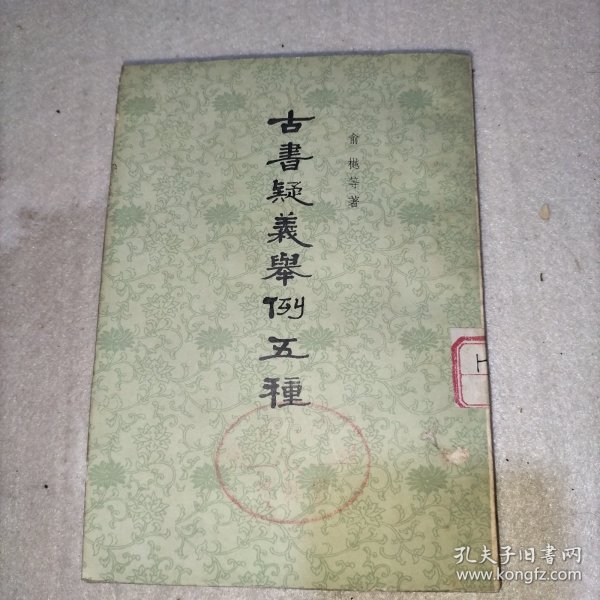 俞樾等著
古書疑義舉例五種
H
孔夫子旧书网
www.kongfz.com